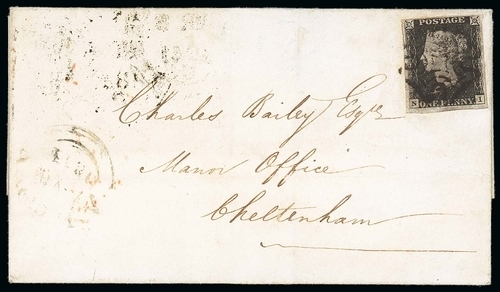 POSTAGE
S ONE PENNY I
Charles Bailey Esqre
Manor Office
Cheltenham